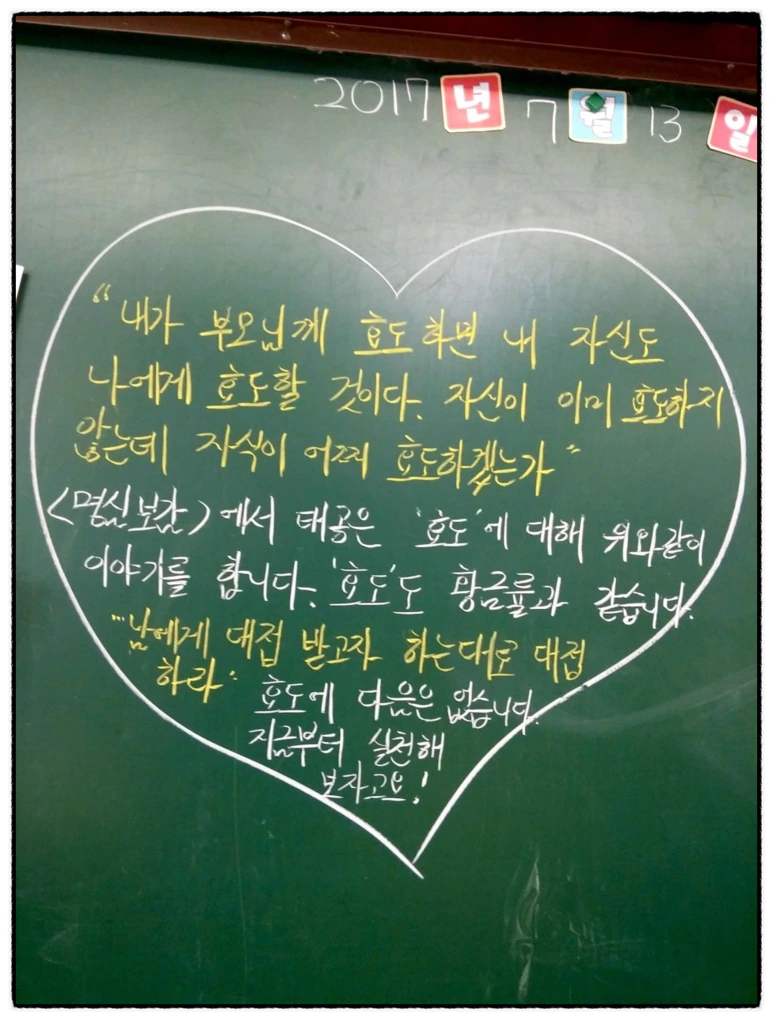 2017년 7월 13일
"내가 부모님께 효도하면 내 자신도
나에게 효도할 것이다. 자신이 이미 효도하지
않는데 자식이 어찌 효도하겠는가"
<명심보감>에서 태공은 '효도'에 대해 위와같이
이야기를 합니다. '효도'도 황금률과 같습니다.
"남에게 대접 받고자 하는대로 대접
하라"
효도에 다음은 없습니다.
지금부터 실천해
보자고요!